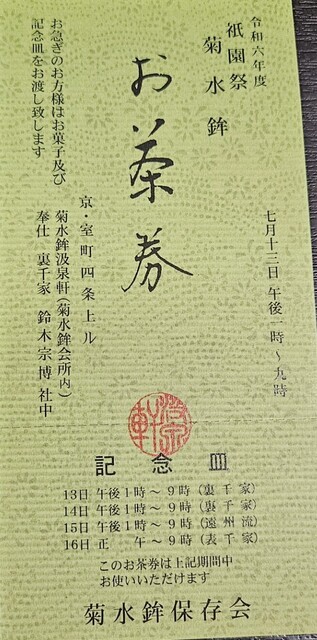 令和六年度
祇園祭
菊水鉾
お茶券
七月十三日 午後一時～九時
お急ぎのお方様はお菓子及び
記念皿をお渡し致します
京・室町四条上ル
菊水鉾汲泉軒(菊水鉾会所内)
奉仕 裏千家 鈴木宗博社中
記念皿
13日 午後1時～9時(裏千家)
14日 午後1時～9時(裏千家)
15日 午後1時～9時(遠州流)
16日 正 午～9時(表千家)
このお茶券は上記期間中
お使いいただけます
菊水鉾保存会